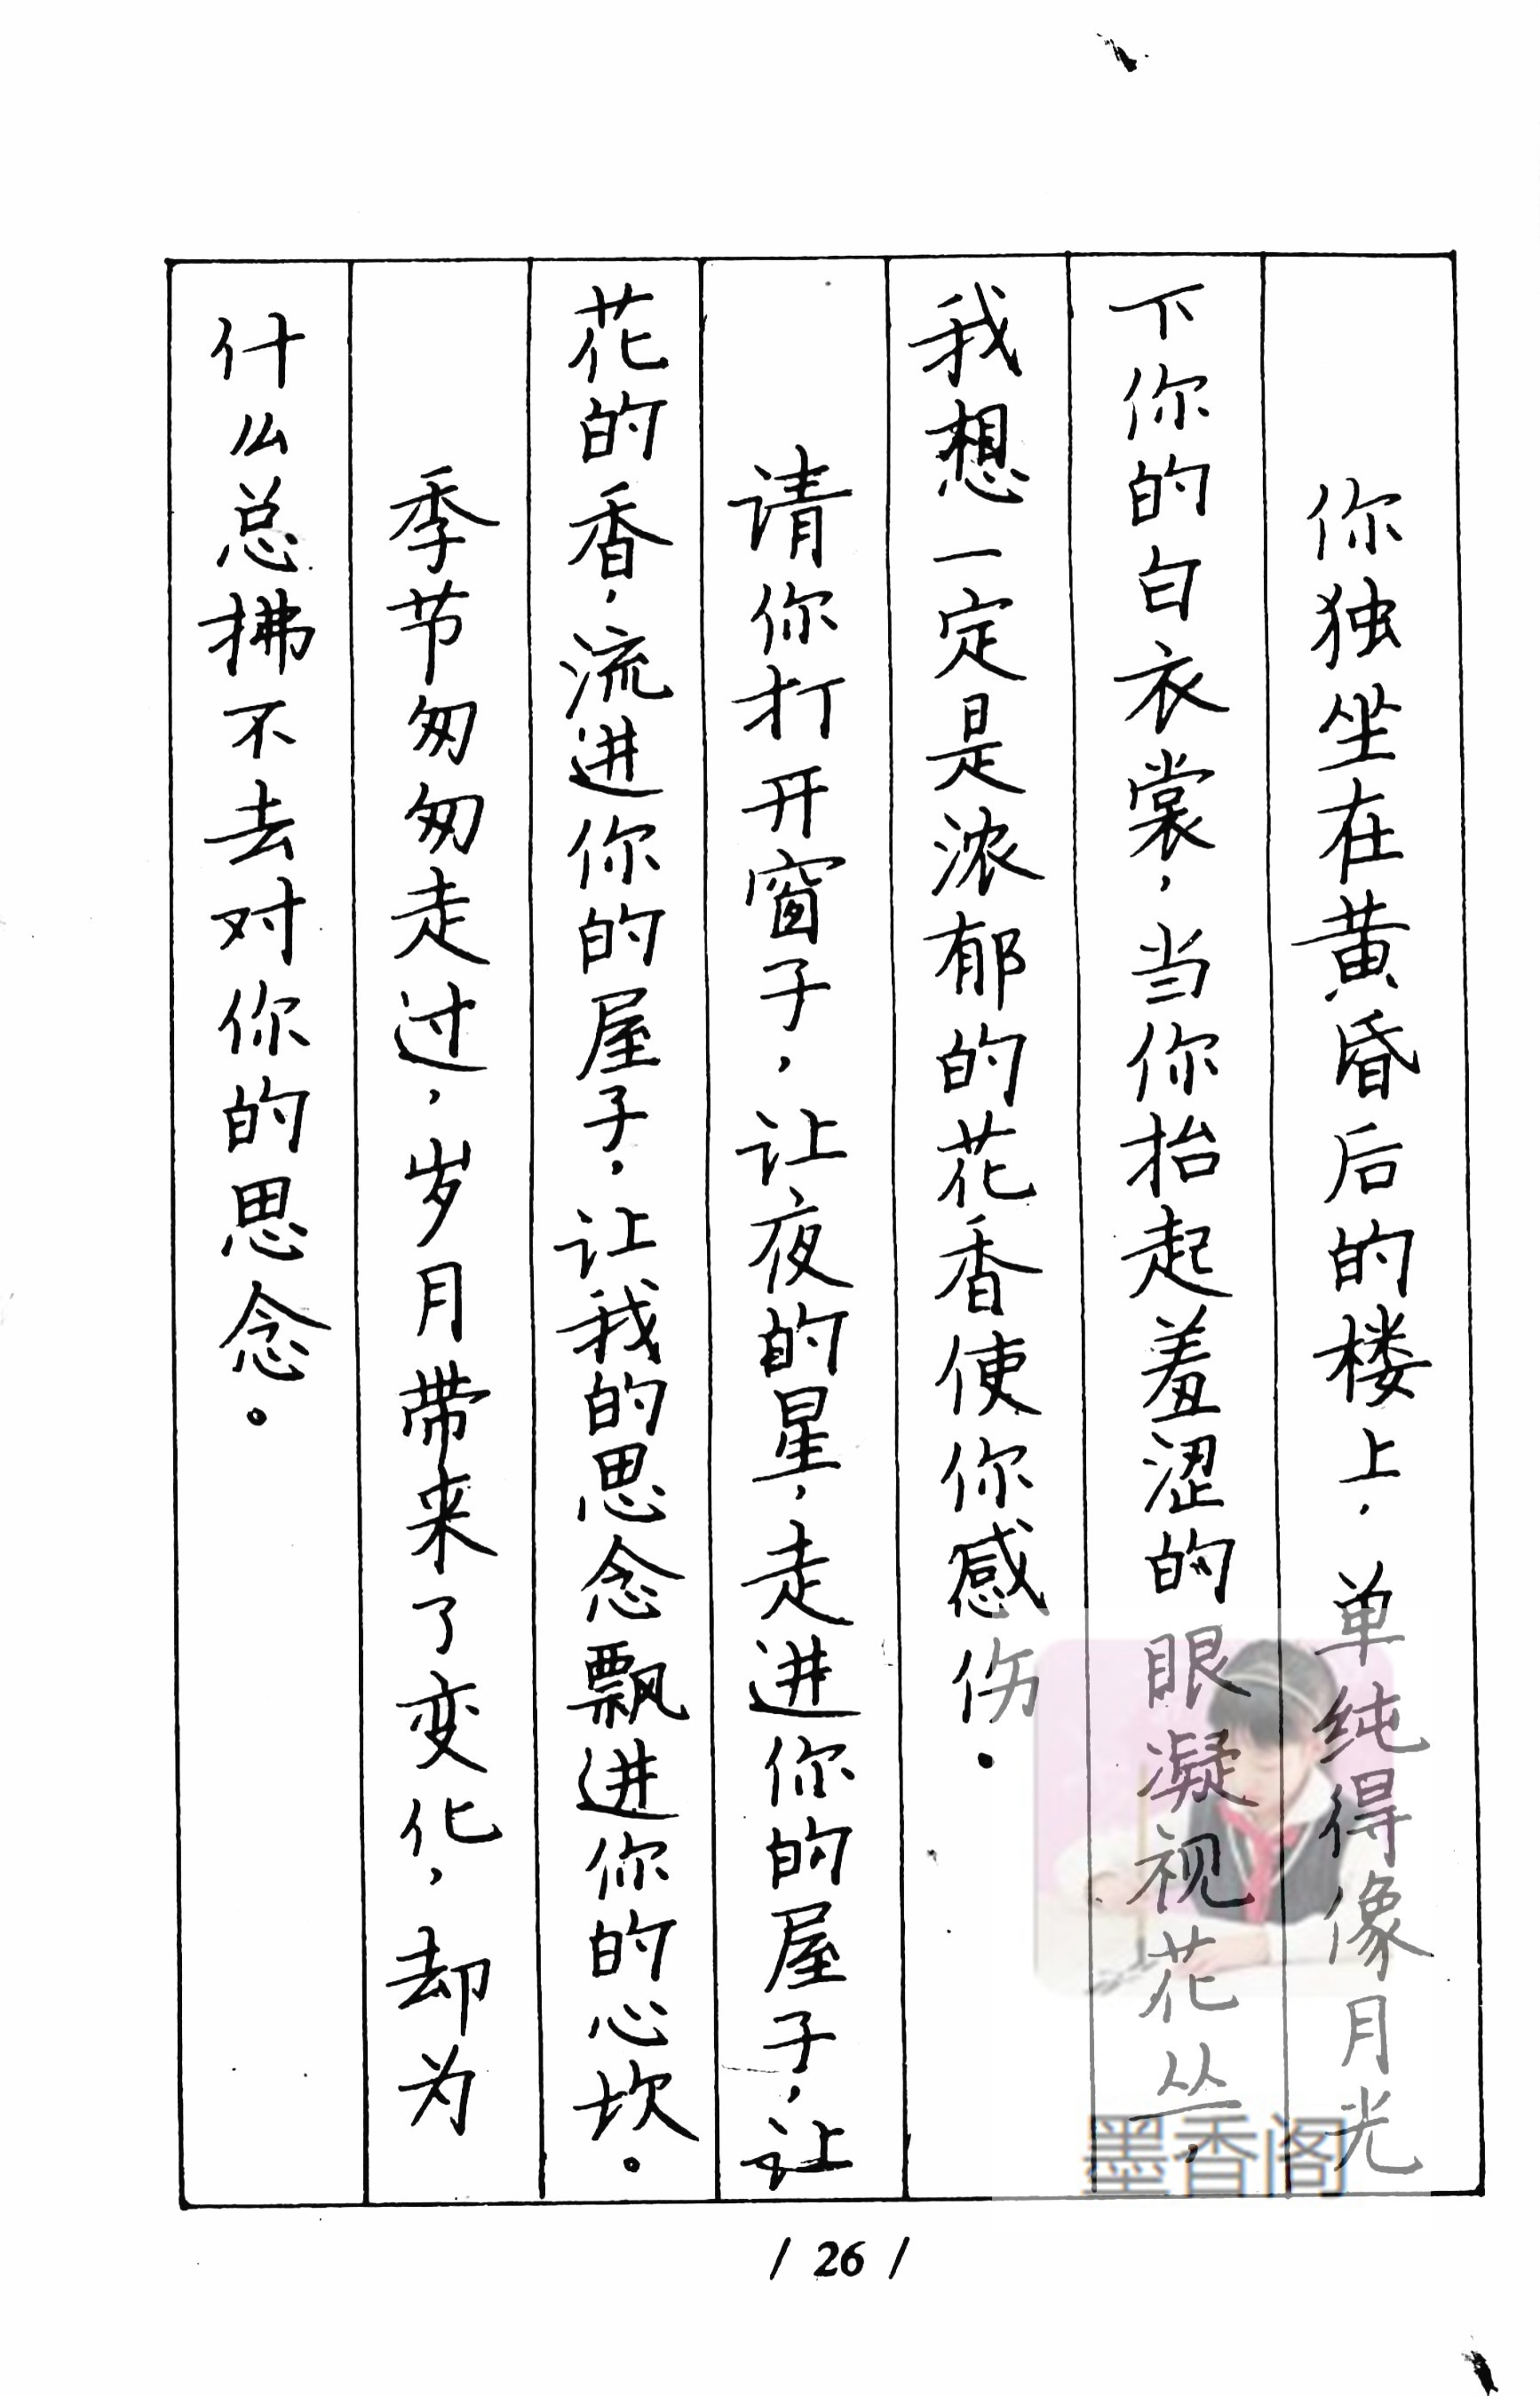 你独坐在黄昏后的楼上，单纯得像月光
下你的白衣裳，当你抬起羞涩的眼凝视花丛，
我想一定是浓郁的花香使你感伤。
请你打开窗子，让夜的星，走进你的屋子，让
花的香，流进你的屋子，让我的思念飘进你的心坎。
季节匆匆走过，岁月带来了变化，却为
什么总拂不去对你的思念。
墨香阁
/ 26 /